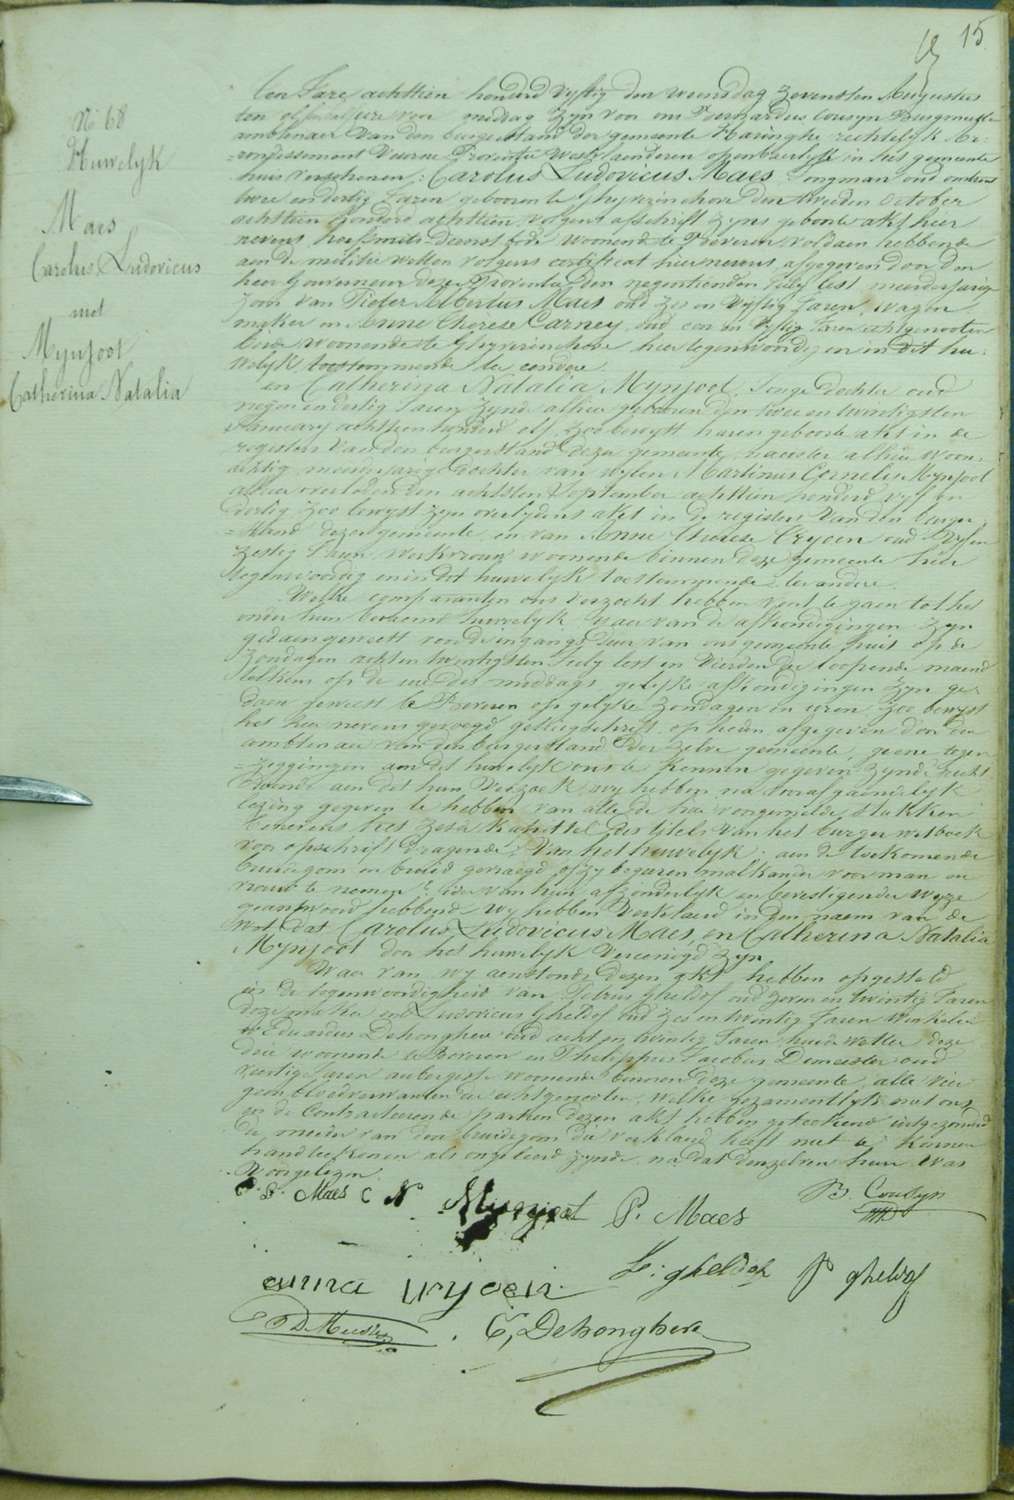 15
N 68
Huwelyk
Maes
Carolus Ludovicus
met
Mynjoot
Catherina Natalia
ten Jare achttien honderd vyftig den woensdag zevensten Augustus
ten elf ure voor middag zyn voor ons Bernardus Cousyn Burgmeester
ambtenaer van den burgerstand der gemeente Haringhe rechterlyk ar-
=rondissement Veurne Provintie West-vlaenderen openbaerlyk in het gemeente
huis verschenen: Carolus Ludovicus Maes Jongman oud
twee en dertig Jaren geboren te Ghyverinchove den tweeden october
achttien honderd achttien volgens afschrift zyns geboorte akt hier
nevens woonende te Beveren voldaen hebbende
aen de militie wetten volgens certificat hiernevens afgegeven door den
heer Gouverneur dezer Provintie den negentienden July lest meerderjarige
zoon van Pieter Albertus Maes oud zes en vyftig Jaren, wagen
maker en Anne Therese Carney oud een en vyftig Jaren echtgenooten
beide woonende te Ghyverinchove hier tegenwoordig en in dit hu-
welyk toestemmende ter eendere
en Catherina Natalia Mynjoot Jonge dochter oud
negen en dertig Jaren zynde alhier geboren den twee en twintigsten
January achttien honderd elf zoo bewyst haren geboorte akt in de
registers van den burgerstand dezer gemeente, alhier woon-
achtig meerderjarige Dochter van wylen Martinus Cornelis Mynjoot
alhier overleden den achtsten September achttien honderd vyf en
dertig zoo bewyst zyn overlydens akt in de registers van den burger
=stand dezer gemeente, en van Anne Therese Cryoen oud vyf en
zestig Jaren werkvrouw woonende binnen deze gemeente hier
tegenwoordig en in dit huwelyk toestemmende ter andere.
Welke comparanten ons verzocht hebben voort te gaen tot het
onder hun beraemd huwelyk waer van de afkondigingen zyn
gedaen geweest voor de ingangs deur van ons gemeente huis op de
Zondagen acht en twintigsten July lest en vierden der loopende maend
telkens op de ure des middags gelyke afkondigingen zyn ge-
daen geweest te Beveren op gelyke zondagen en uren zoo bewyst
het hier nevens gevoegd getuigschrift op heden afgegeven door den
ambtenaer van den burgerstand der zelve gemeente, geene tegen
=zeggingen aen dit huwelyk ons te kennen gegeven zynde recht
doende aen dit hun verzoek, wy hebben na voorafgaendelyk
lezing gegeven te hebben van alle de hier voorgemelde stukken
benevens het zesde kapittel des titels van het burger wetboek
voor opschrift dragende: Van het huwelyk: aen de toekomende
bruidegom en bruid gevraegd of zy begeeren malkander voor man en
vrouw te nemen? Ider van hun afzonderlyk en bevestigender wyze
geantwoord hebbende wy hebben verklaerd in den naem van de
wet dat Carolus Ludovicus Maes en Catherina Natalia
Mynjoot door het huwelyk vereenigd zyn
Waer van wy aenstonds dezen akt hebben opgesteld
in de tegenwoordigheid van Petrus Gheldof oud zeven en twintig Jaren
en Ludovicus Gheldof oud zes en twintig Jaren Winkelier
Eduardus Dehonghere oud acht en twintig Jaren deze
drie woonende te Beveren en Philippus Jacobus Demeester oud
veertig Jaren aubergist woonende binnen deze gemeente, alle vier
geen bloedverwanten der echtgenooten, welke gezamentlyk met ons
en de Contracteerende partien dezen akt hebben geteekend uitgezonderd
de moeder van den bruidegom die verklaerd heeft niet te kunnen
handteekenen als ongeleerd zynde na dat denzelven hun was
Voorgelezen
Maes C N Mynjoot P. Maes B. Cousyn
anna cryoen L: gheldof P gheldof
DMeester E, Dehonghere